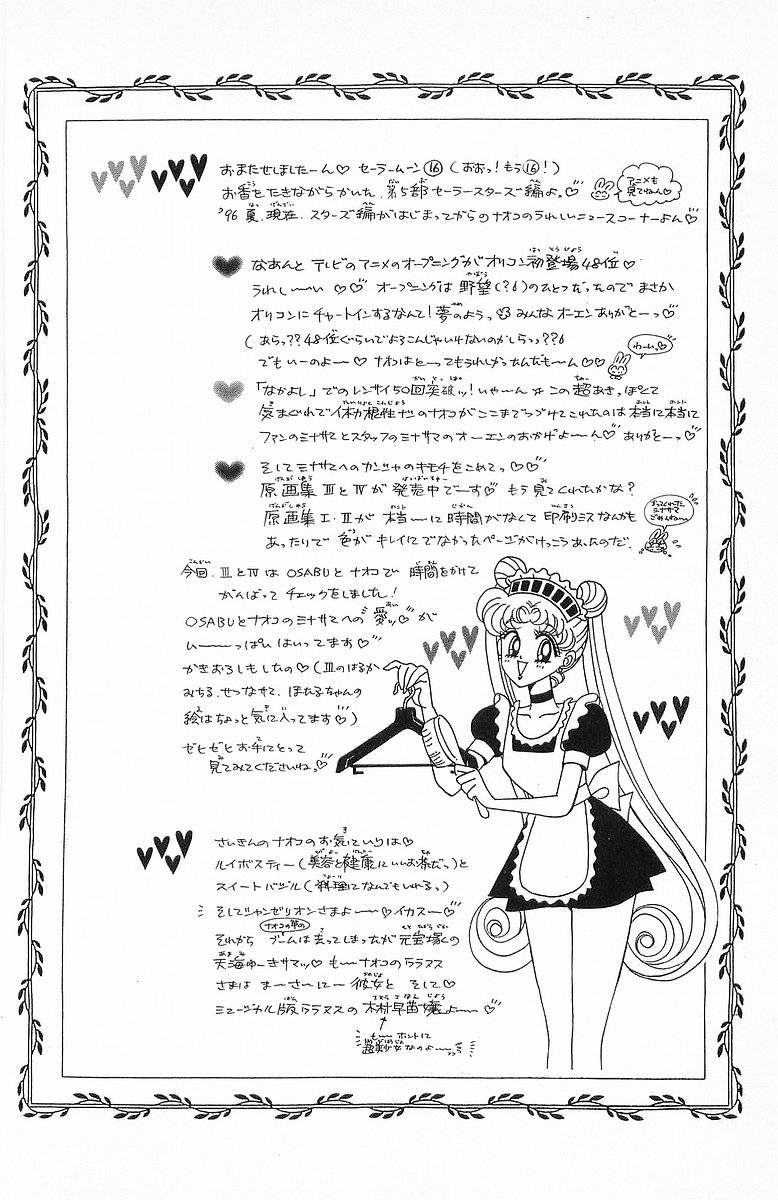 おまたせしましたーん♡ セーラームーン⑯(おおっ!もう⑯!)
お香をたきながらかいた、第5部セーラースターズ編よ。♡
アニメも
見てねん♡
'96 夏、現在、スターズ編がはじまってからのナオコのうれしいニュースコーナーよん♡
なあんと テレビのアニメのオープニングがオリコン初登場48位♡
うれしーーい ♡♡ オープニングは 野望(?)のひとつだったので まさか
オリコンに チャートインするなんて!夢のようっ みんな オーエン ありがとーっ♡
(あらっ??48位ぐらいでよろこんじゃいけないのかしらっ???
わーん♡
でもいーのよーー♡ ナオコはとーってもうれしかったんだもーん♡♡
「なかよし」でのレンサイ50回突破ッ!いやーん この超あきっぽくて
気まぐれで体力根性ナシのナオコがここまでつづけてこれたのは本当に本当に
ファンのミナサマとスタッフのミナサマのオーエンのおかげよーん♡ ありがとーっ♡
そしてミナサマへのカンシャのキモチをこめてっ♡♡
原画集ⅢとⅣが 発売中でーす♡ もう見てくれたかな?
原画集Ⅰ・Ⅱが 本当ーに時間がなくて 印刷ミスなんかも
かってくれた
ミナサマ
ごめんねー
あったりで 色が キレイにでなかったページがけっこうあったのだ.
今回、ⅢとⅣは OSABUと ナオコで 時間をかけて
がんばって チェックをしました!
OSABUとナオコのミナサマへの"愛ッ♡"が
いーーーっぱい はいってます♡
かきおろしもしたの♡(Ⅲのはるか
みちる、せつなさんて、ほたるちゃんの
絵はちょっと気に入ってます♡)
ゼヒゼヒ お手にとって
見てみてくださいねっ♡
さいきんの ナオコのお気にいりは♡
ルイボスティー(美容と健康にいいお茶だっ)と
スイートバジル(料理になんでもいれるっ)
そしてシャンゼリオンさまよーー♡イカスー♡
ナオコの中の
それから ブームは去ってしまったが 元宝塚の
天海ゆーきサマッ♡ もーナオコのララヌス
さまは まーさーにー 彼女と そして♡
ミュージカル版ララヌスの 木村早苗嬢よーー♡
もーー ホントに
超美少女なのよーー